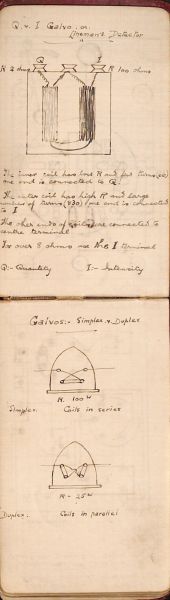 Q. & I Galvo. or
Lineman's Detector
Q I
R. 2 ohms R 100 ohms
The inner coil has low R and few turns
one end is connected to Q.
The outer coil has high R and large
number of turns (830) one end is connected
to I
The other ends of coils are connected to
centre terminal
For over 8 ohms use the I terminal
Q:- Quantity I:- Intensity
Galvos:- Simplex & Duplex
R. 100ω
Simplex: Coils in series
R - 25ω
Duplex: Coils in parallel